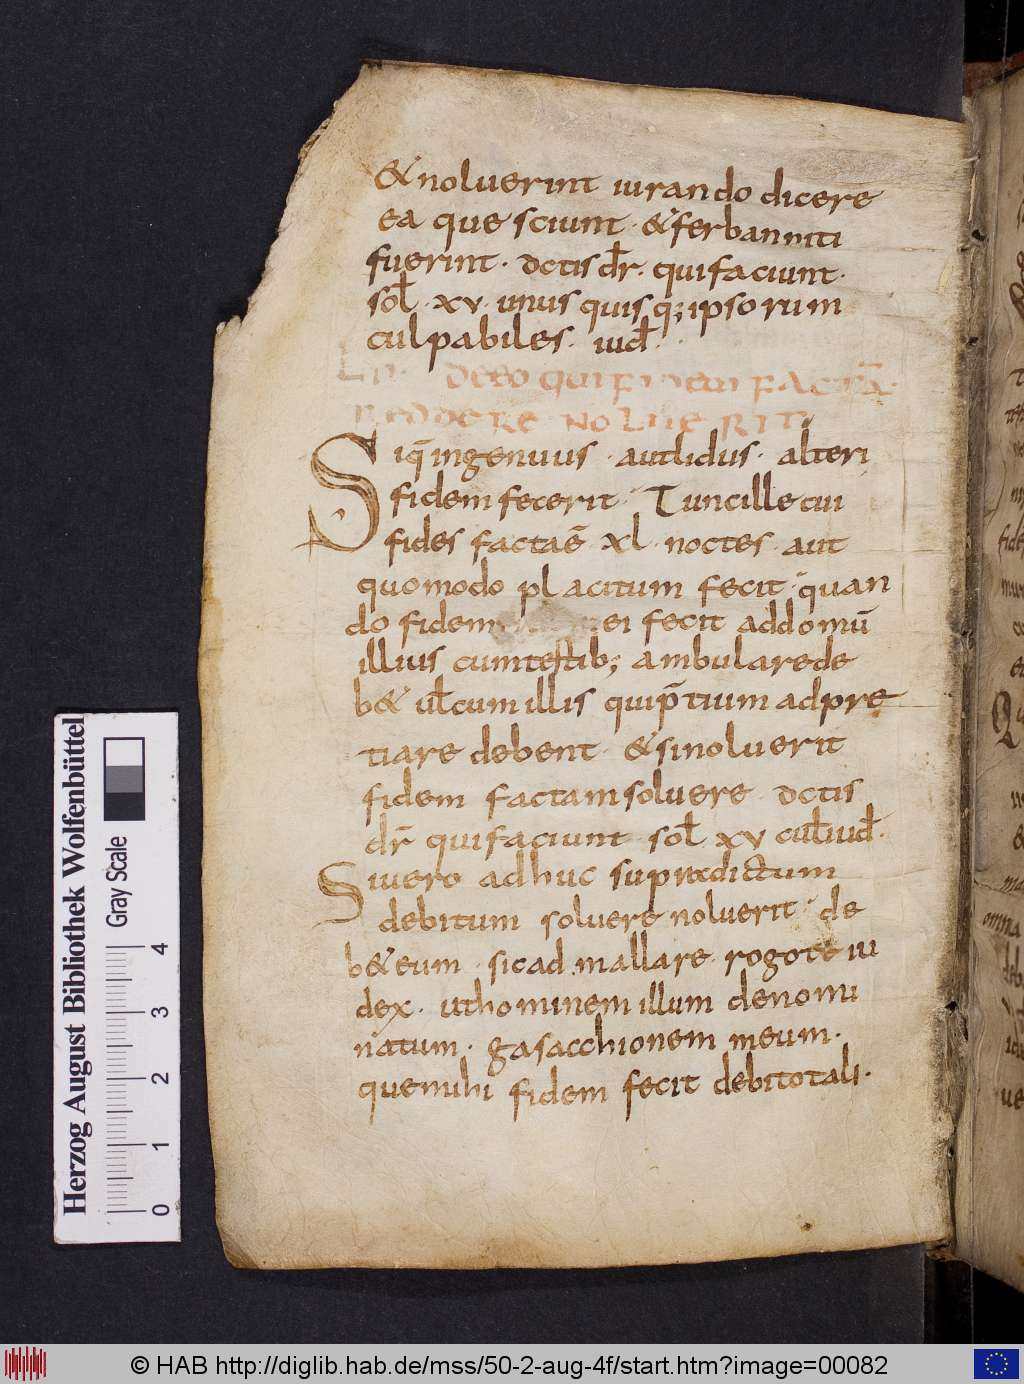 & noluerint iurando dicere
ea que sciunt · & ferbanniti
fuerint · dctis dr̄ · qui faciunt ·
sol̄ · xv · unus quis q; ipsorum
culpabiles · iud̄ ·
De eo qui fidem factā
reddere noluerit
Siq̄ ingenuus · aut lidus · alteri
fidem fecerit · Tunc ille cui
fides facta ē xl · noctes · aut
quomodo placitum fecit · quan
do fidem ei fecit ad domū
illius cum testib; ambulare de
b& ul̄ cum illis qui p̄tium adpre
tiare debent · & si noluerit
fidem factam soluere dctis
dr̄ qui faciunt · sol̄ xv cul̄ iud̄ ·
Si uero adhuc supradictum
debitum soluere noluerit · de
b& eum · sic admallare · rogo te iu
dex · ut hominem illum denomi
natum · gasacchionem meum ·
que mihi fidem fecit debito tali ·
Herzog August Bibliothek Wolfenbüttel
Gray Scale
0 1 2 3 4
© HAB http://diglib.hab.de/mss/50-2-aug-4f/start.htm?image=00082